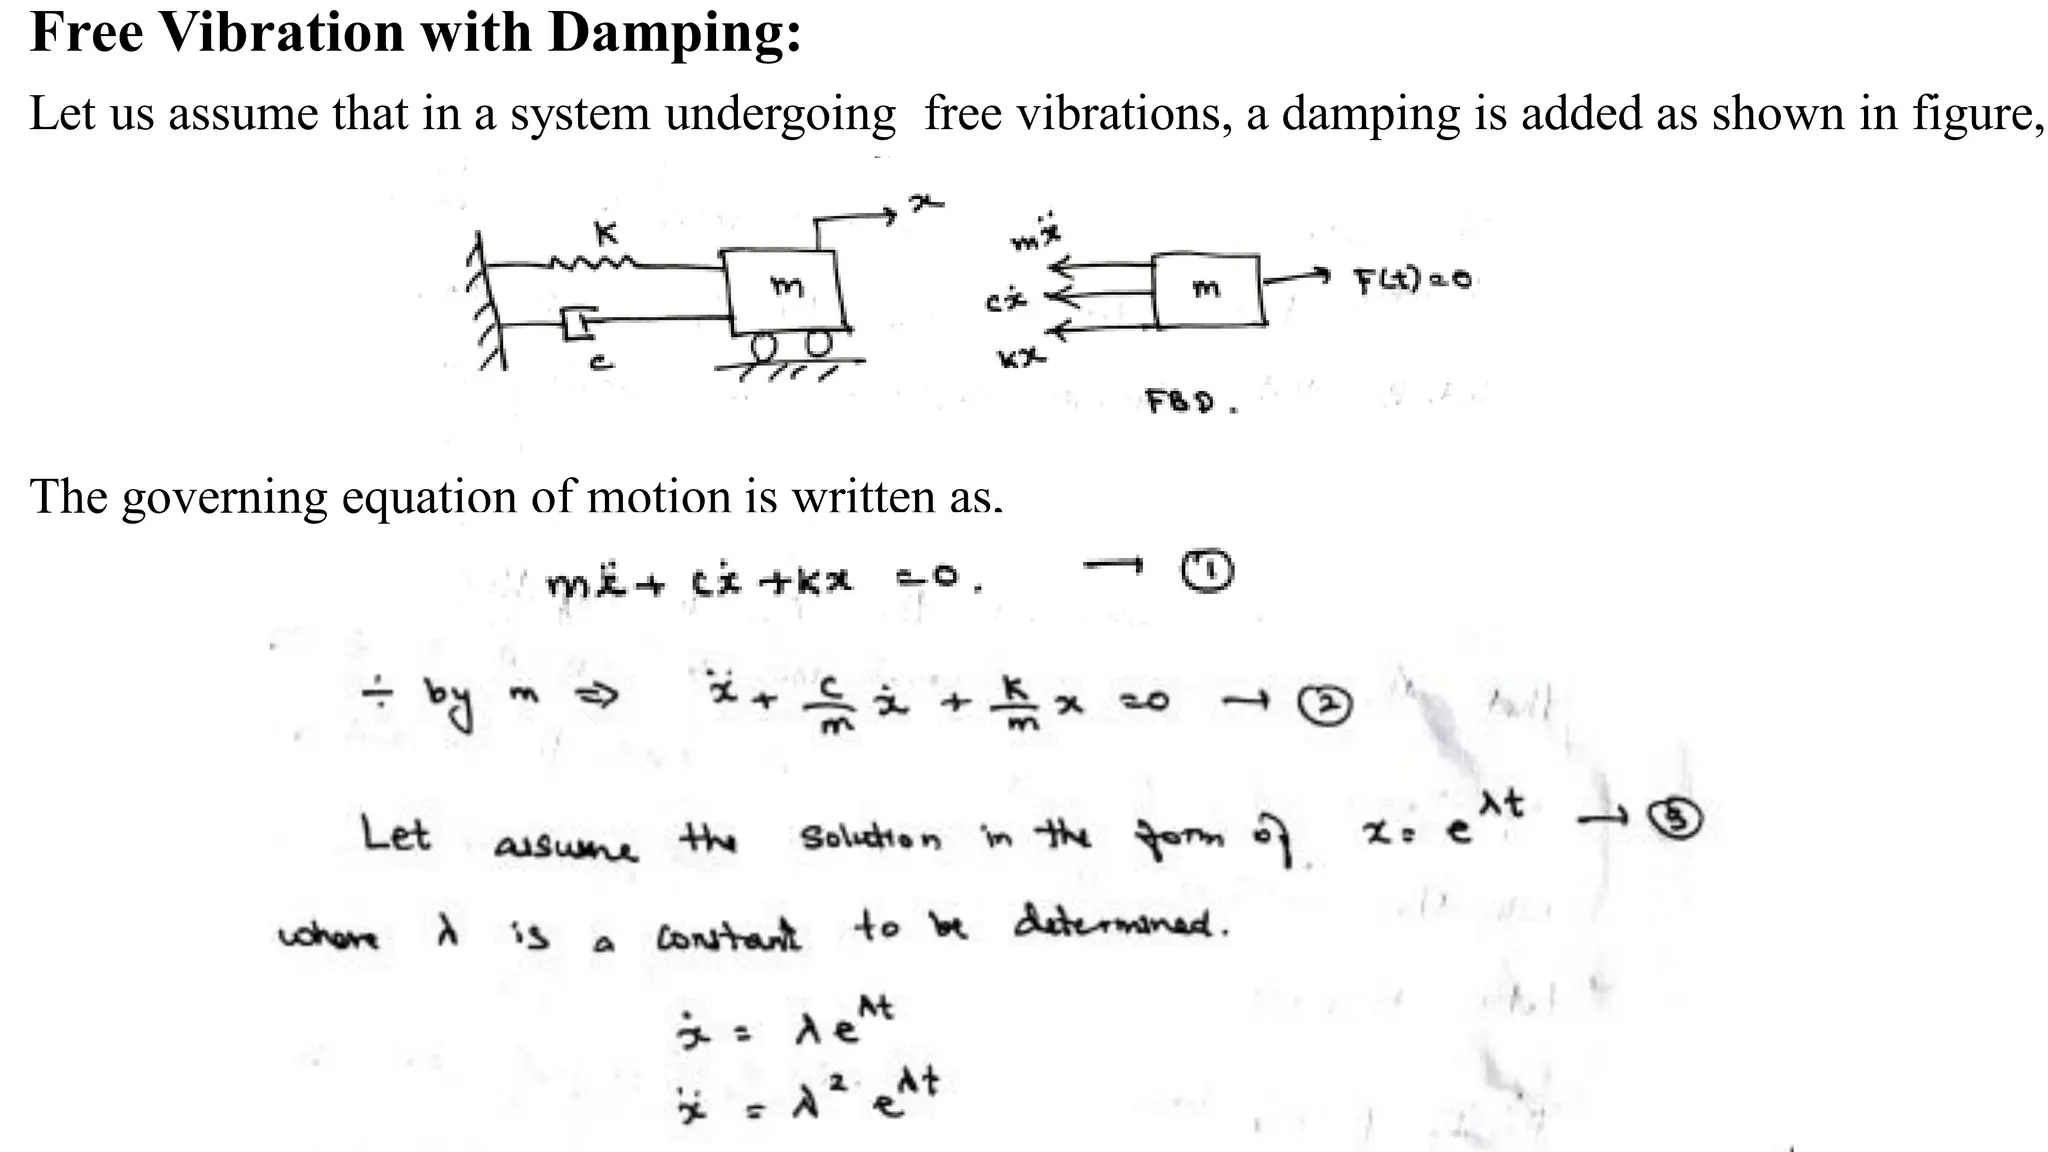 Free Vibration with Damping:
Let us assume that in a system undergoing free vibrations, a damping is added as shown in figure,
K
m
x
c
mẍ
cẋ
kx
m
F(t)=0
FBD.
The governing equation of motion is written as,
mẍ + cẋ + kx = 0. → ①
÷ by m ⇒ ẍ + c/m ẋ + k/m x = 0 → ②
Let assume the solution in the form of x = e^λt → ③
where λ is a constant to be determined.
ẋ = λ e^λt
ẍ = λ² e^λt